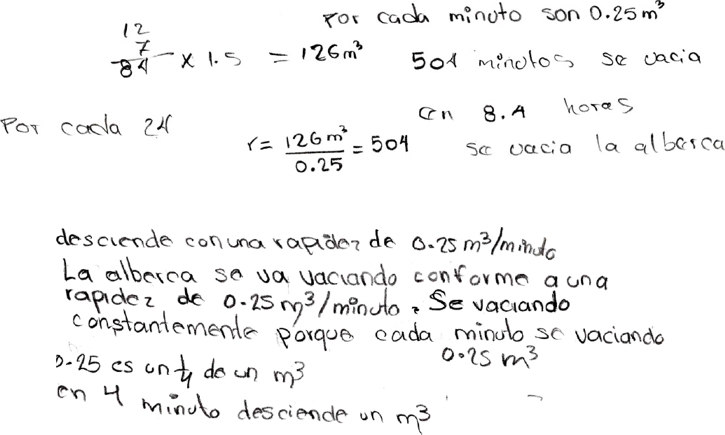 Por cada minuto son 0.25 m³
12
7
84 x 1.5 = 126 m³
504 minutos se vacia
en 8.4 horas
se vacia la alberca
Por cada 24
r = 126 m³ / 0.25 = 504
desciende con una rapidez de 0.25 m³/minuto
La alberca se va vaciando conforme a una
rapidez de 0.25 m³/minuto, Se vaciando
constantemente porque cada minuto se vaciando
0.25 m³
0.25 es un 1/4 de un m³
en 4 minuto desciende un m³